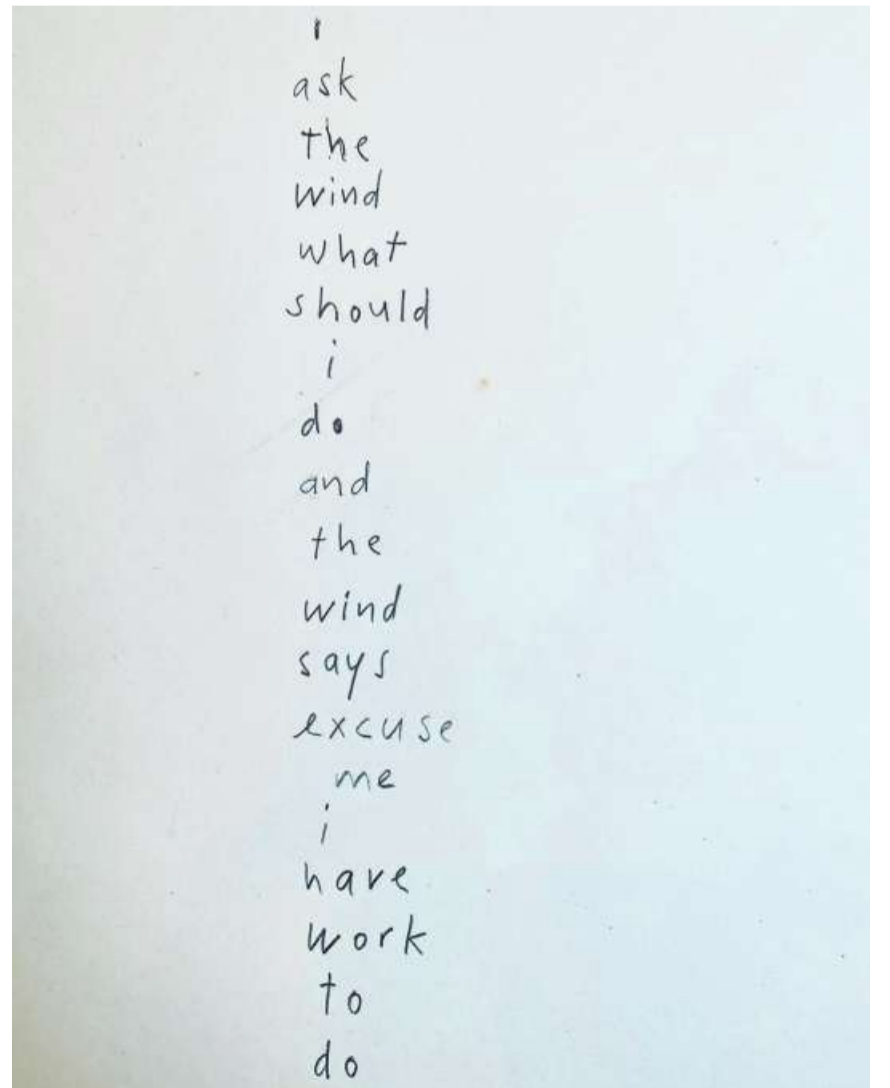 i
ask
the
wind
what
should
i
do
and
the
wind
says
excuse
me
i
have
work
to
do